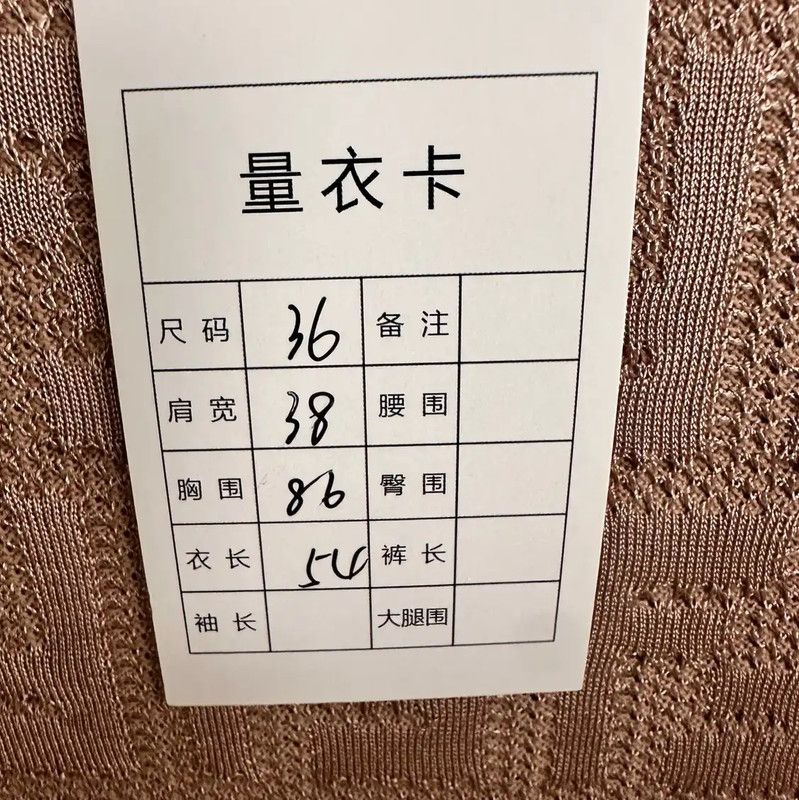 量衣卡
尺码 36 备注
肩宽 38 腰围
胸围 86 臀围
衣长 54 裤长
袖长 大腿围